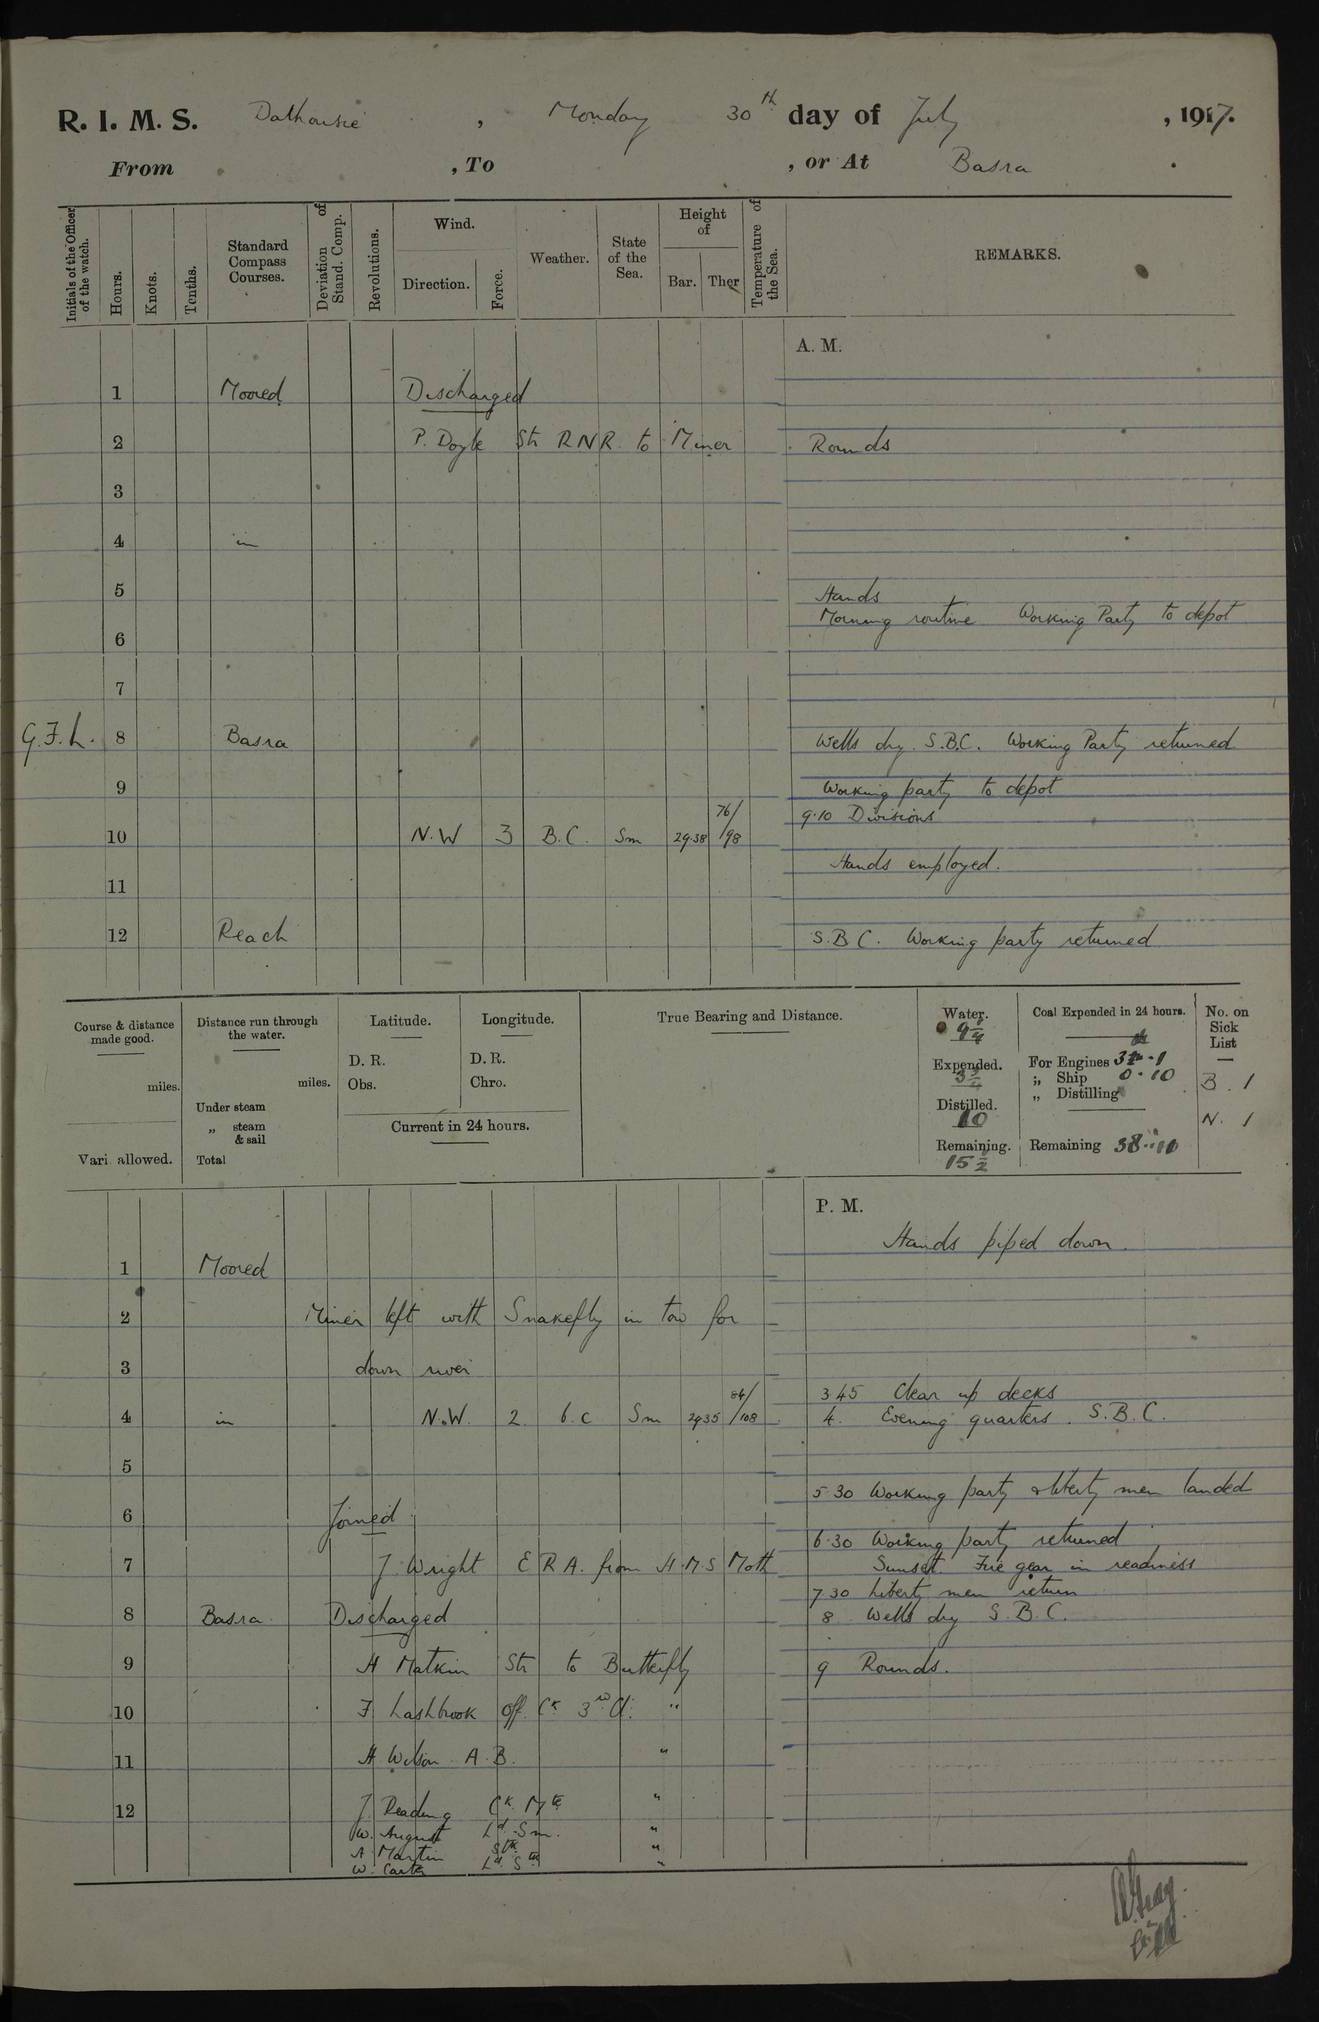 R. I. M. S. Dalhousie , Monday 30th day of July , 1917.
From , To , or At Basra .
Initials of the Officer of the watch.
Hours.
Knots.
Tenths.
Standard Compass Courses.
Deviation of Stand. Comp.
Revolutions.
Wind.
Direction.
Force.
Weather.
State of the Sea.
Height of
Bar. Ther
Temperature of the Sea.
REMARKS.
A. M.
1 Moored Discharged
2 P. Doyle Str RNR to Miner Rounds
3
4 in
5 Hands
Morning routine Working Party to depot
6
7
G.F.L. 8 Basra Wells dry. S.B.C. Working Party returned
9 Working party to depot
9.10 Divisions
10 N.W 3 B.C. Sm 29.38 76/98
Hands employed.
11
12 Reach S.B.C. Working party returned
Course & distance made good.
miles.
Vari. allowed.
Distance run through the water.
miles.
Under steam
„ steam & sail
Total
Latitude.
D. R.
Obs.
Longitude.
D. R.
Chro.
Current in 24 hours.
True Bearing and Distance.
Water.
9 1/4
Expended.
3 3/4
Distilled.
10
Remaining.
15 1/2
Coal Expended in 24 hours.
For Engines
„ Ship 0.10
„ Distilling
Remaining 38.10
No. on Sick List
B. 1
N. 1
P. M.
Hands piped down.
1 Moored
2 Miner left with Snakefly in tow for
3 down river
3.45 Clear up decks
4 in N.W. 2 b.c Sm 29.35 84/108 4. Evening quarters. S.B.C.
5
5.30 Working party & liberty men landed
6 Joined
6.30 Working party returned
7 J. Wright E R A. from H.M.S Moth Sunset. Fire gear in readiness
7.30 Liberty men return
8 Basra Discharged 8 Wells dry S.B.C.
9 H Matkin Str to Butterfly 9 Rounds.
10 F Lashbrook Off. Ck 3rd Cl. "
11 H Wilson A.B. "
12 J. Reading Ck. Mte "
W. August Ld. Sm. "
A Martin Stk "
W. Carter Ld. Stk "